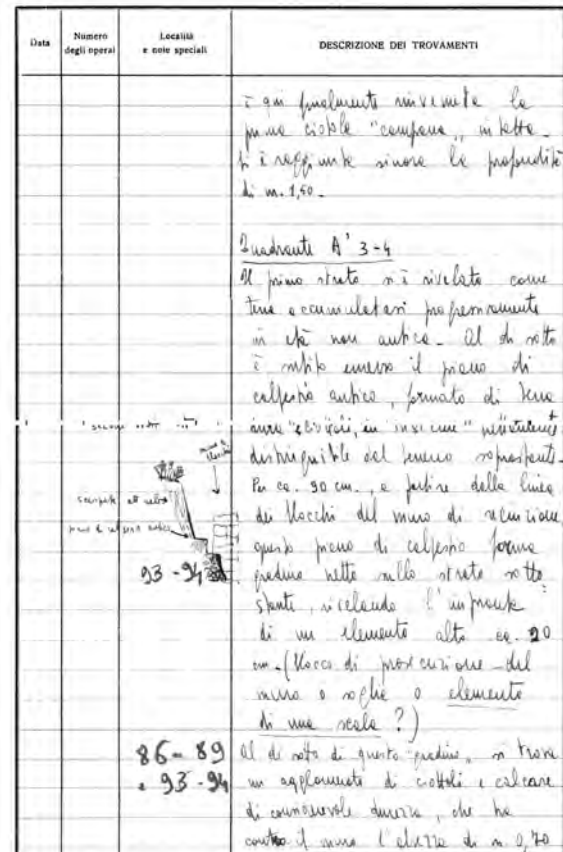 Data
Numero
degli operai
Località
e note speciali
DESCRIZIONE DEI TROVAMENTI
È qui finalmente rinvenuta la
prima ciotola "campana" intatta.
Si è raggiunta sinora la profondità
di m. 1,50.
Quadrante A' 3-4
Il primo strato si è rivelato come
terra accumulatasi progressivamente
in età non antica. Al di sotto
è subito emerso il piano di
calpestio antico, formato di terra
nettamente
distinguibile dal terreno soprastante.
Per ca. 90 cm., a partire dalla linea
dei blocchi del muro di recinzione
questo piano di calpestio forma
gradino netto sullo strato sotto
stante, rivelando l'impronta
di un elemento alto ca. 20
cm. (blocco di prosecuzione del
muro o soglia o elemento
di una scala?)
muro a
blocchi
scarpata
93-94
86-89
e 93-94
Al di sotto di questo gradino, si trova
un agglomerato di ciottoli e calcare
di considerevole durezza, che ha
contro il muro l'altezza di m 0,70